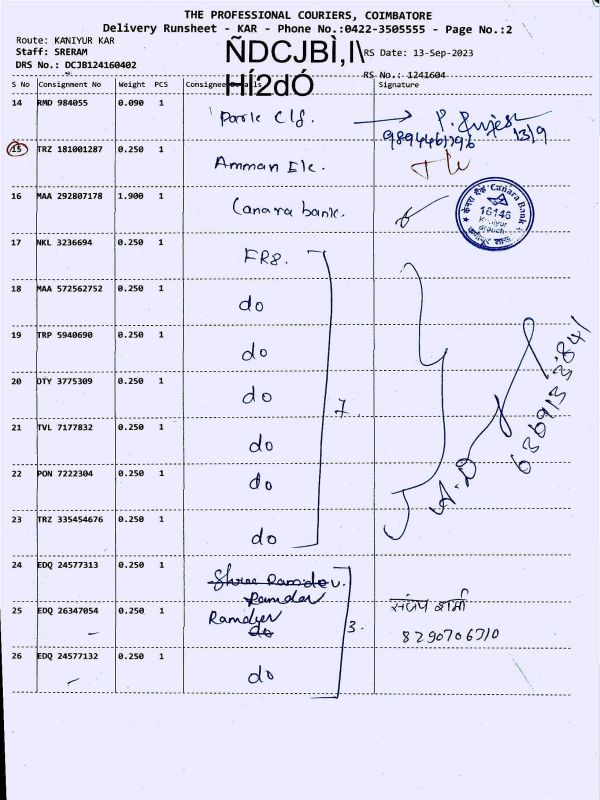 THE PROFESSIONAL COURIERS, COIMBATORE
Delivery Runsheet - KAR - Phone No.:0422-3505555 - Page No.:2
Route: KANIYUR KAR
Staff: SRERAM
DRS No.: DCJB124160402
ÑDCJBÌ,I\
HÍ2dÓ
RS Date: 13-Sep-2023
RS No.: 1241604
S No Consignment No Weight PCS Consignee Details Signature
14 RMD 984055 0.090 1 Parle Clg. P. 13/9
15 TRZ 181001287 0.250 1 Amman Ele.
16 MAA 292807178 1.900 1 Canara bank.
केनरा बैंक Canara Bank
16146
Kaniyur
Branch
17 NKL 3236694 0.250 1 FRS.
18 MAA 572562752 0.250 1 do
19 TRP 5940690 0.250 1 do
20 OTY 3775309 0.250 1 do 7.
21 TVL 7177832 0.250 1 do
22 PON 7222304 0.250 1 do
23 TRZ 335454676 0.250 1 do
24 EDQ 24577313 0.250 1 Shree Ramdev.
Ramdev
25 EDQ 26347054 0.250 1 Ramdev
do 3.
8290706510
26 EDQ 24577132 0.250 1 do